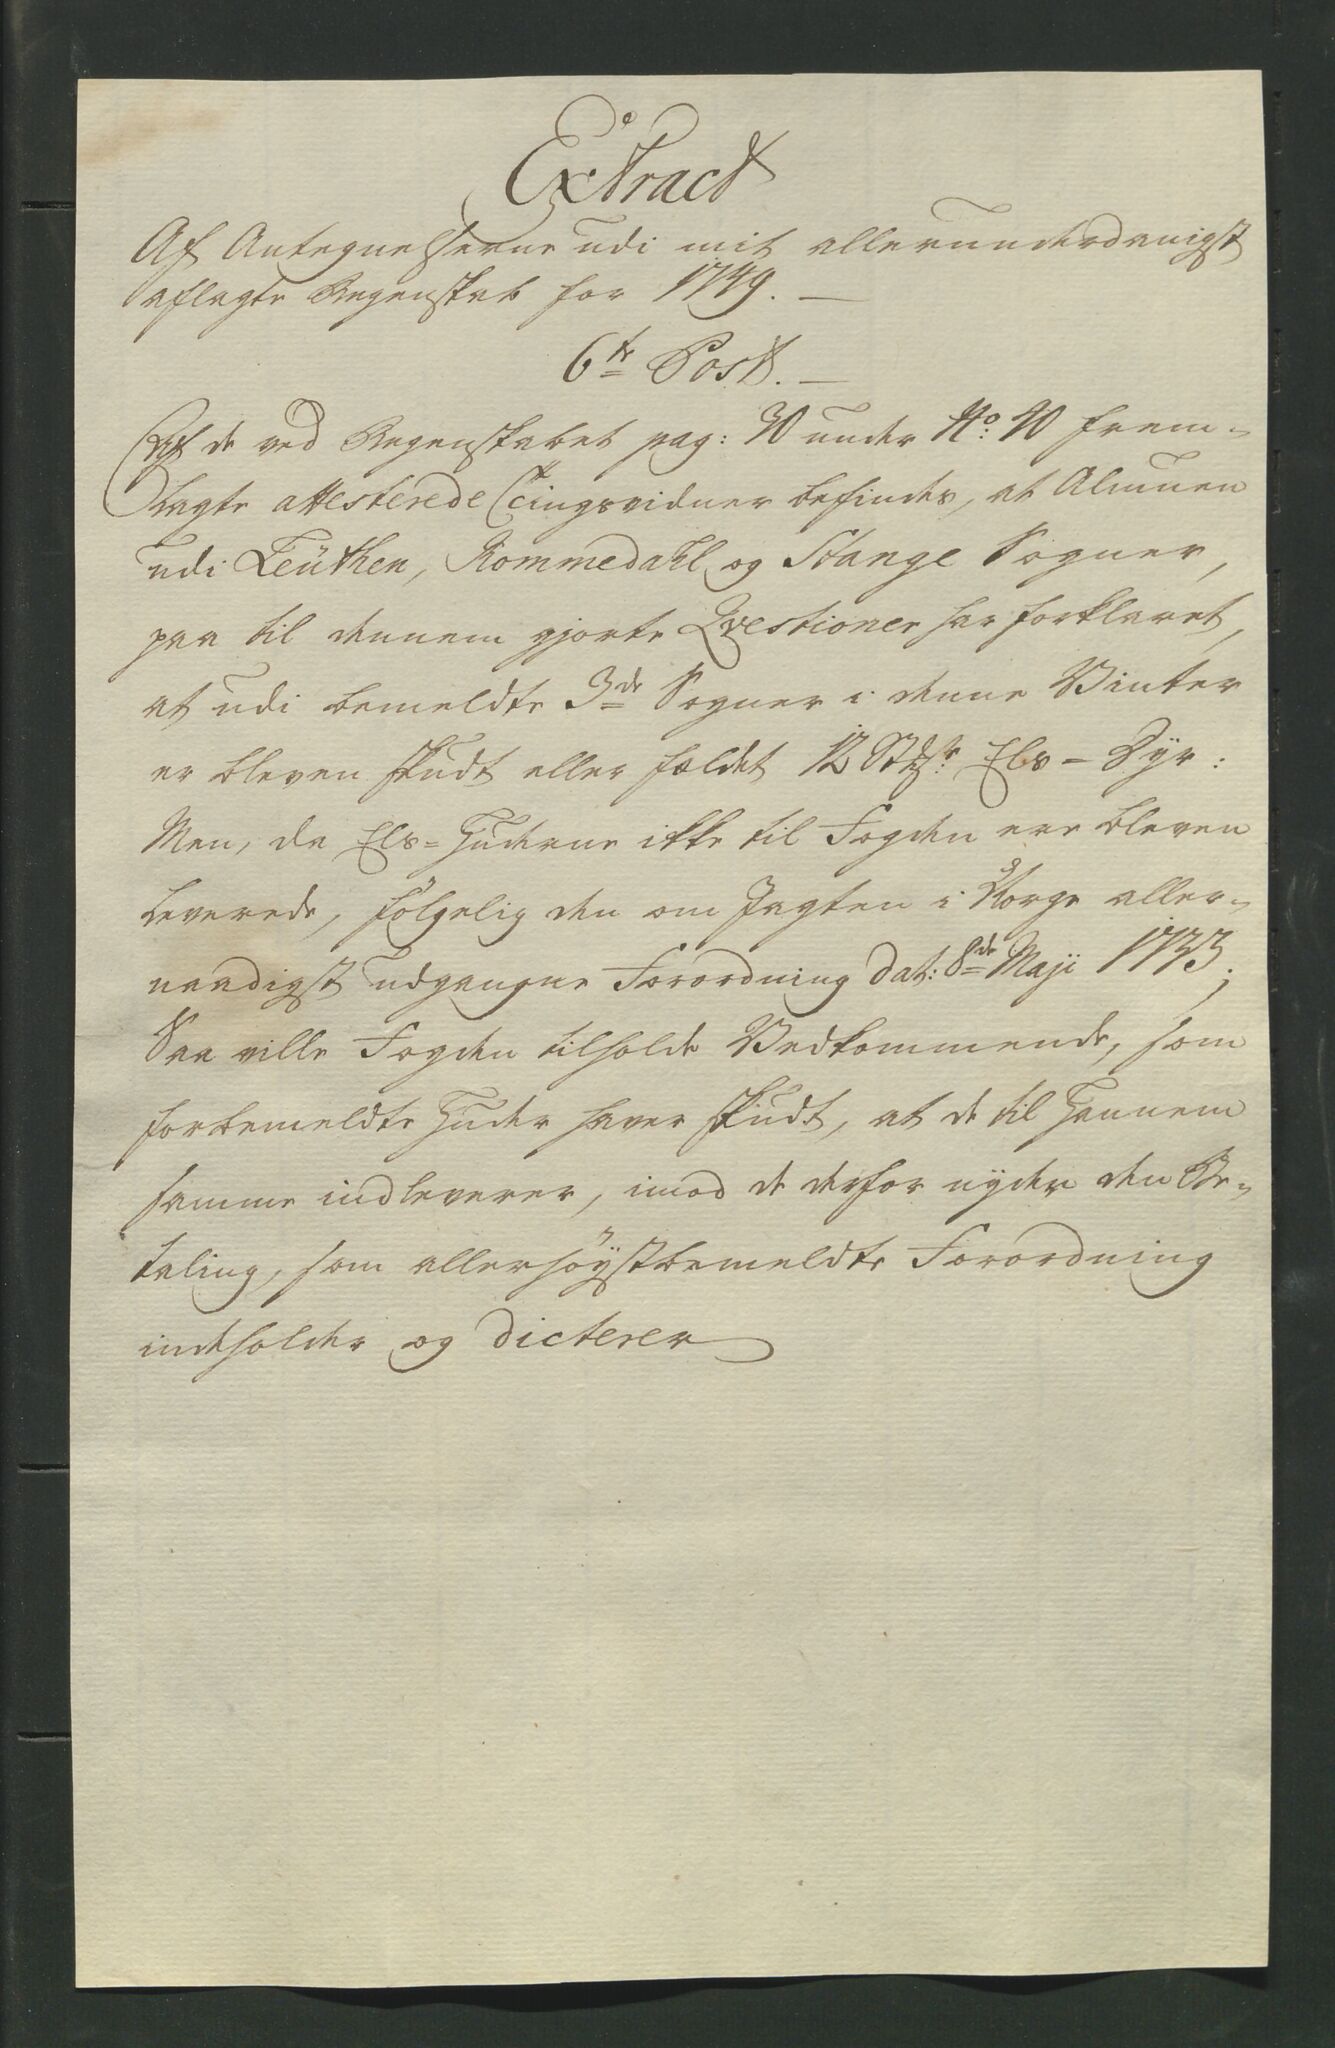 Extract
Af Antegnelserne udi mit allerunderdanigst
aflagte Regenskab for 1749. —
6te Post. —
Af de ved Regenskabet pag: under No: frem-
lagte attesterede Tingsvidner befindes, at Almuen
udi Leüthen, Rommedahl og Stange Sogner,
paa til dennem gjorte Qvestioner har forklaret,
at udi bemeldte 3de Sogner i denne Vinter
er bleven skudt eller fældet 12 Stkr: Els-Dyr:
Men, da Els-Huderne ikke til Fogden ere bleven
leverede, følgelig den om Jagten i Norge aller-
naadigst udgangne Forordning dat: 8de Maji 1733;
Saa ville Fogden tilholde Vedkommende, som
forbemeldte Huder haver skudt, at de til Hannem
samme indleverer, imod de derfor nyder den Be-
taling, som allerhöystbemeldte Forordning
indeholder og dicterer